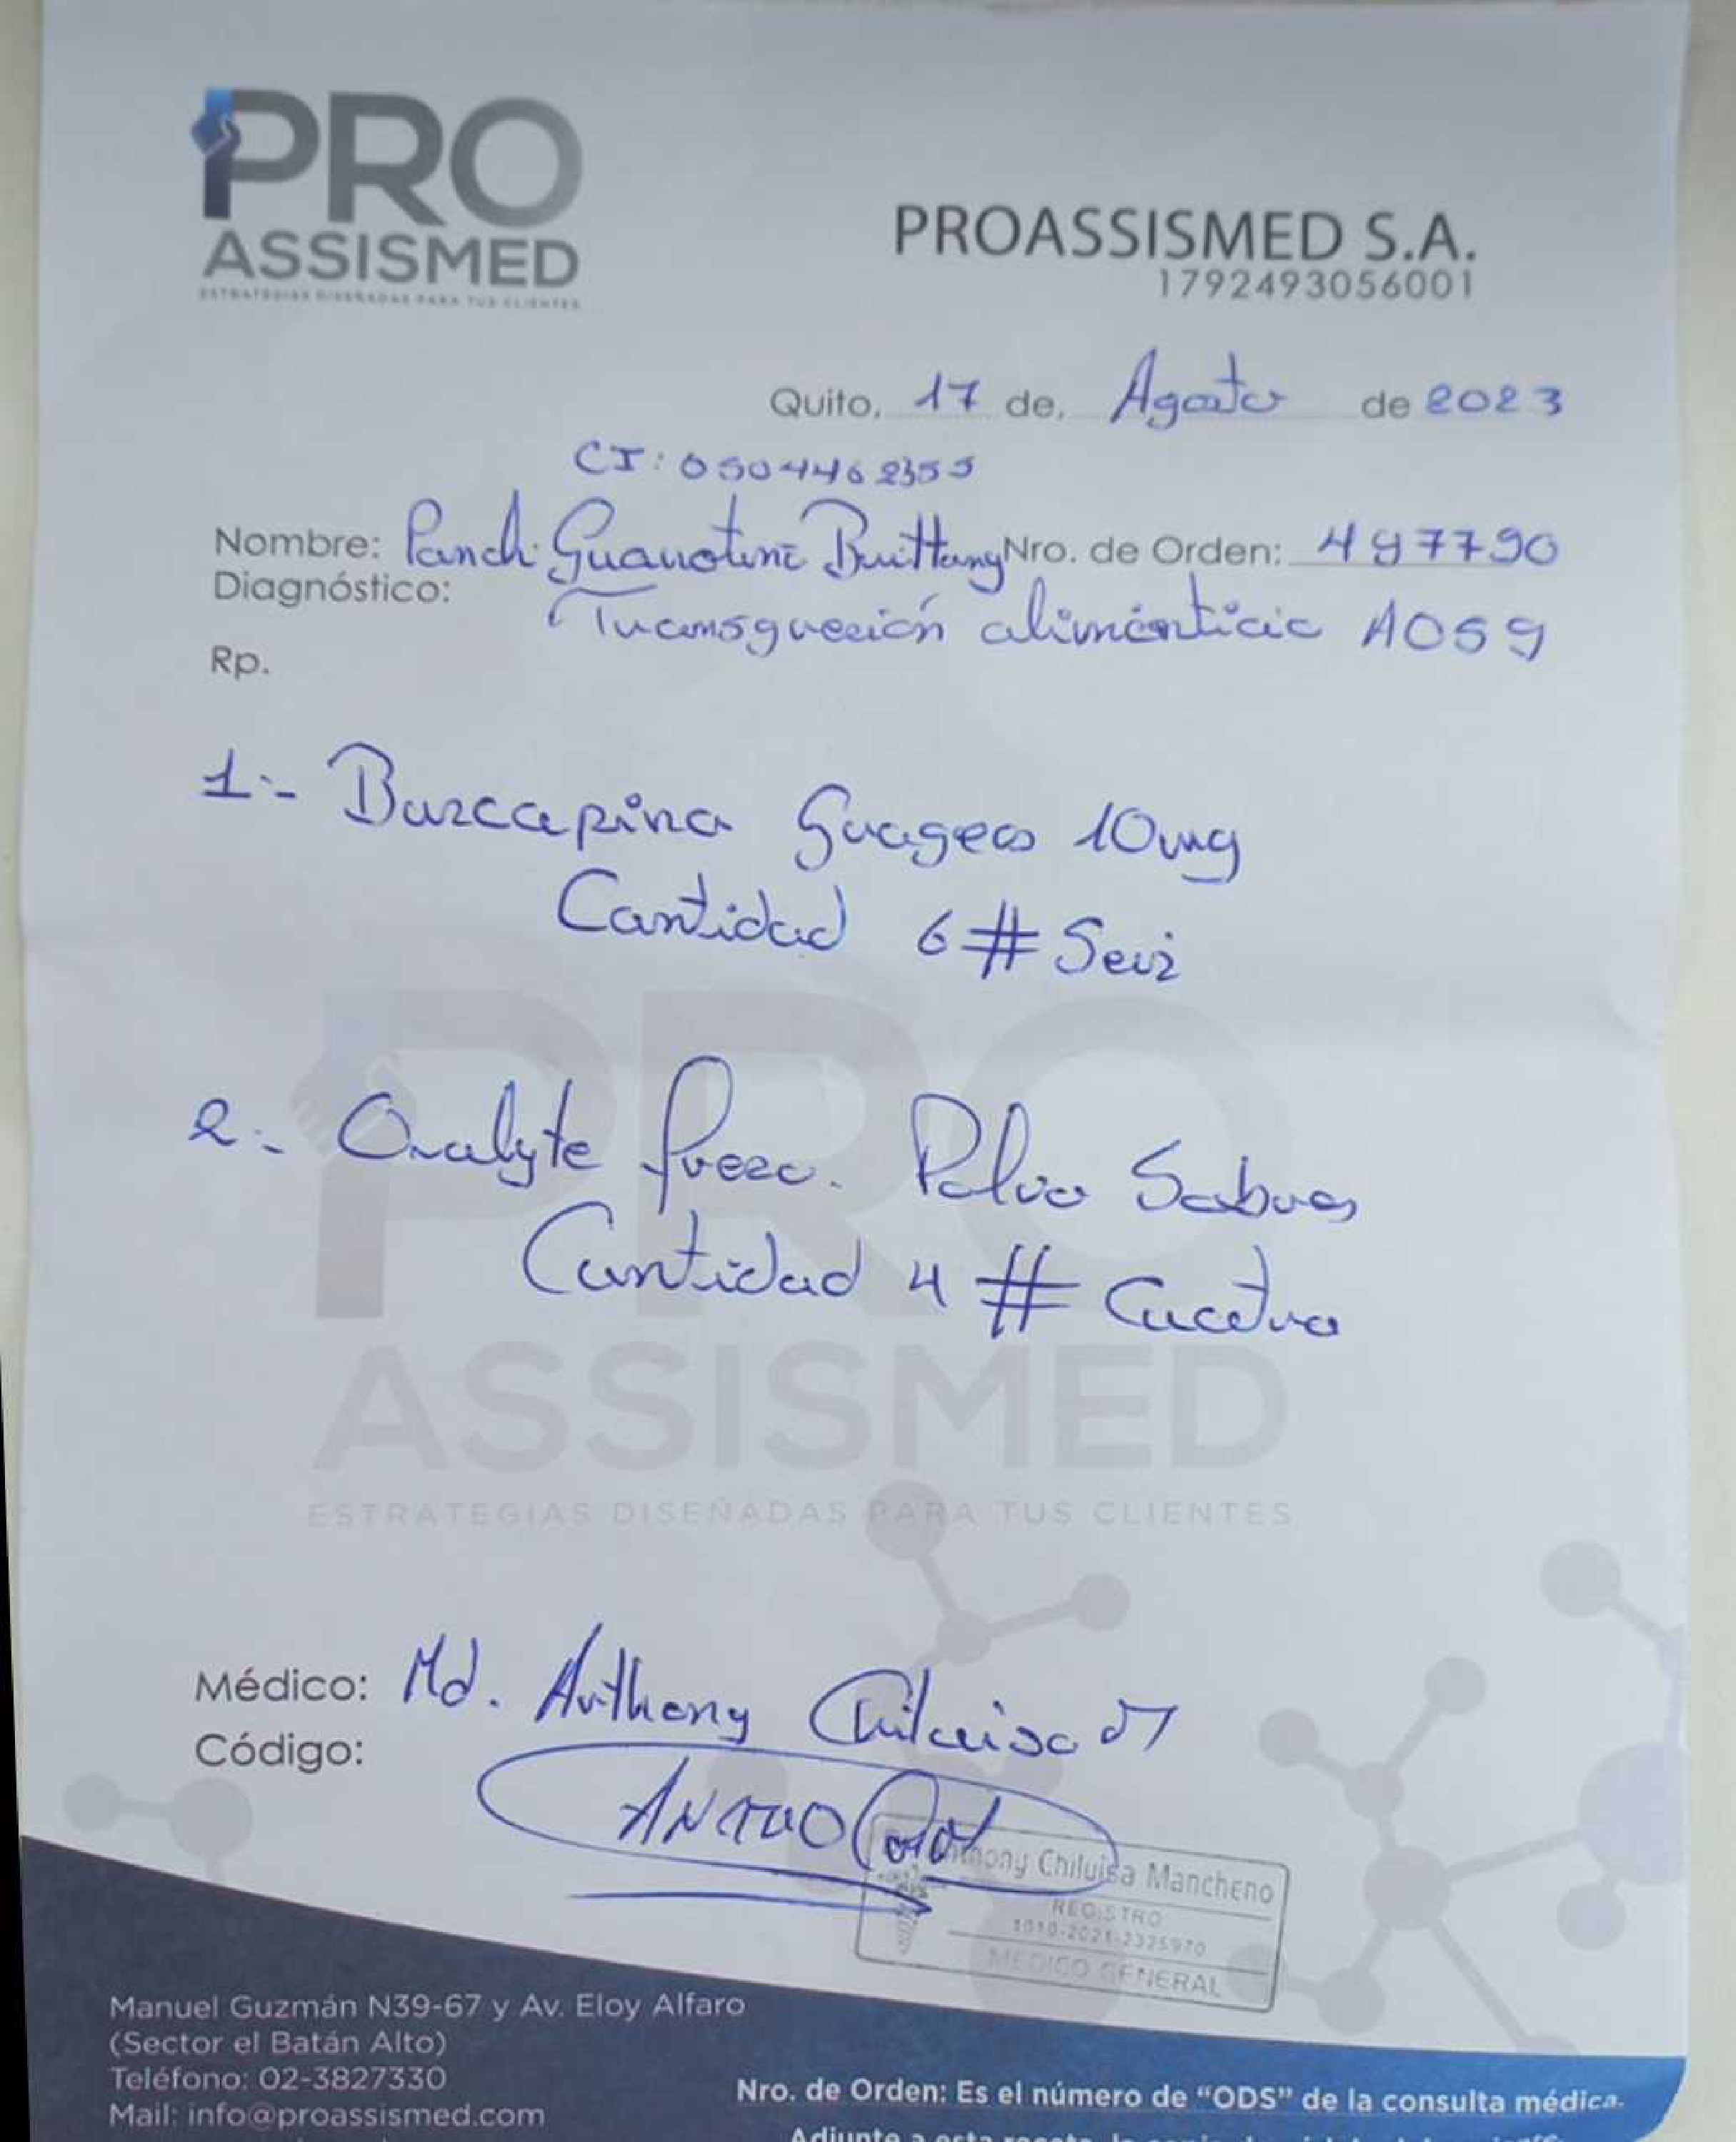 PRO
ASSISMED
ESTRATEGIAS DISEÑADAS PARA TUS CLIENTES
PROASSISMED S.A.
1792493056001
Quito, 17 de, Agosto de 2023
CI: 0504462355
Nombre: Panchi Guanotuni Brittany Nro. de Orden: 497790
Diagnóstico: Transgresión alimenticia A059
Rp.
1.- Buscapina Grageas 10mg
Cantidad 6 # Seis
2.- Oralyte fresa. Polvo Sobres
Cantidad 4 # Cuatro
PRO
ASSISMED
ESTRATEGIAS DISEÑADAS PARA TUS CLIENTES
Médico: Md. Anthony Chiluisa M
Código:
Anthony Chiluisa Mancheno
REGISTRO
1010-2021-2325970
MEDICO GENERAL
Manuel Guzmán N39-67 y Av. Eloy Alfaro
(Sector el Batán Alto)
Teléfono: 02-3827330
Mail: info@proassismed.com
Nro. de Orden: Es el número de “ODS” de la consulta médica.
Adjunte a esta receta, la copia